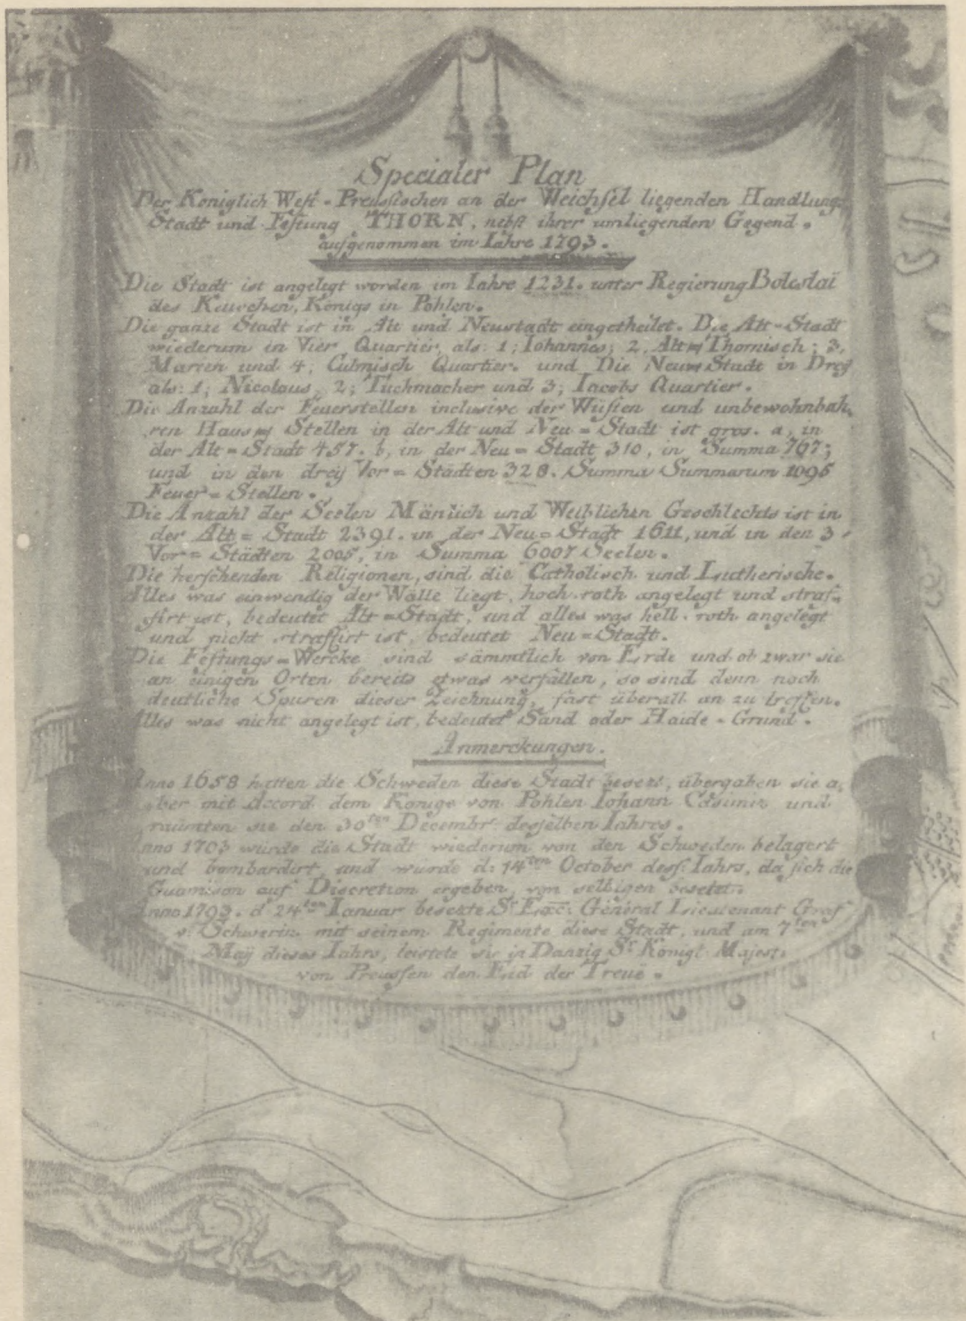 Specialer Plan
Der Königlich West-Preussischen an der Weichsel liegenden Handlung
Stadt und Festung THORN, nebst ihrer umliegenden Gegend.
aufgenommen im Iahre 1793.
Die Stadt ist angelegt worden im Iahre 1231. unter Regierung Boleslai
des Keuschen, Königs in Pohlen.
Die ganze Stadt ist in Alt und Neustadt eingetheilet. Die Alt-Stadt
wiederum in Vier Quartier, als: 1; Iohannes; 2, Alt=Thornisch; 3,
Marien und 4; Culmisch Quartier. und Die Neu=Stadt in Drey
als: 1; Nicolaus, 2; Tuchmacher und 3; Iacobs Quartier.
Die Anzahl der Feuerstellen inclusive der Wüsten und unbewohnbah,
ren Haus= Stellen in der Alt und Neu=Stadt ist gros. a, in
der Alt=Stadt 457. b, in der Neu=Stadt 310, in Summa 767;
und in den drey Vor=Städten 328. Summa Summarum 1095
Feuer=Stellen.
Die Anzahl der Seelen Mänlich und Weiblichen Geschlechts ist in
der Alt=Stadt 2391. in der Neu=Stadt 1611, und in den 3
Vor=Städten 2005, in Summa 6007 Seelen.
Die herschenden Religionen, sind die Catholisch und Lutherische.
Alles was einwendig der Wälle liegt, hoch-roth angelegt und straf,
firt ist, bedeutet Alt=Stadt, und alles was hell-roth angelegt
und nicht straffirt ist, bedeutet Neu=Stadt.
Die Festungs=Wercke sind sämmtlich von Erde und ob zwar sie
an einigen Orten bereits etwas verfallen, so sind denn noch
deutliche Spuren dieser Zeichnung, fast überall an zu treffen.
Alles was nicht angelegt ist, bedeutet Sand oder Haide-Grund.
Anmerckungen.
Anno 1658 hatten die Schweden diese Stadt besezt, übergaben sie a,
ber mit Accord dem Könige von Pohlen Iohann Casimir und
räumten sie den 30ten Decembr: desselben Iahres.
Anno 1703 wurde die Stadt wiederum von den Schweden belagert
und bombardirt, und wurde d: 14ten October dess: Iahrs, da sich die
Guarnison auf Discretion ergeben, von selbigen besetzt.
Anno 1793. d 24ten Ianuar besezte Sr Exc: Général Lieutenant Graf
v: Schwerin mit seinem Regimente diese Stadt, und am 7ten
Maÿ dieses Iahrs, leistete sie in Danzig Sr Königl: Majest:
von Preussen den Eid der Treue.